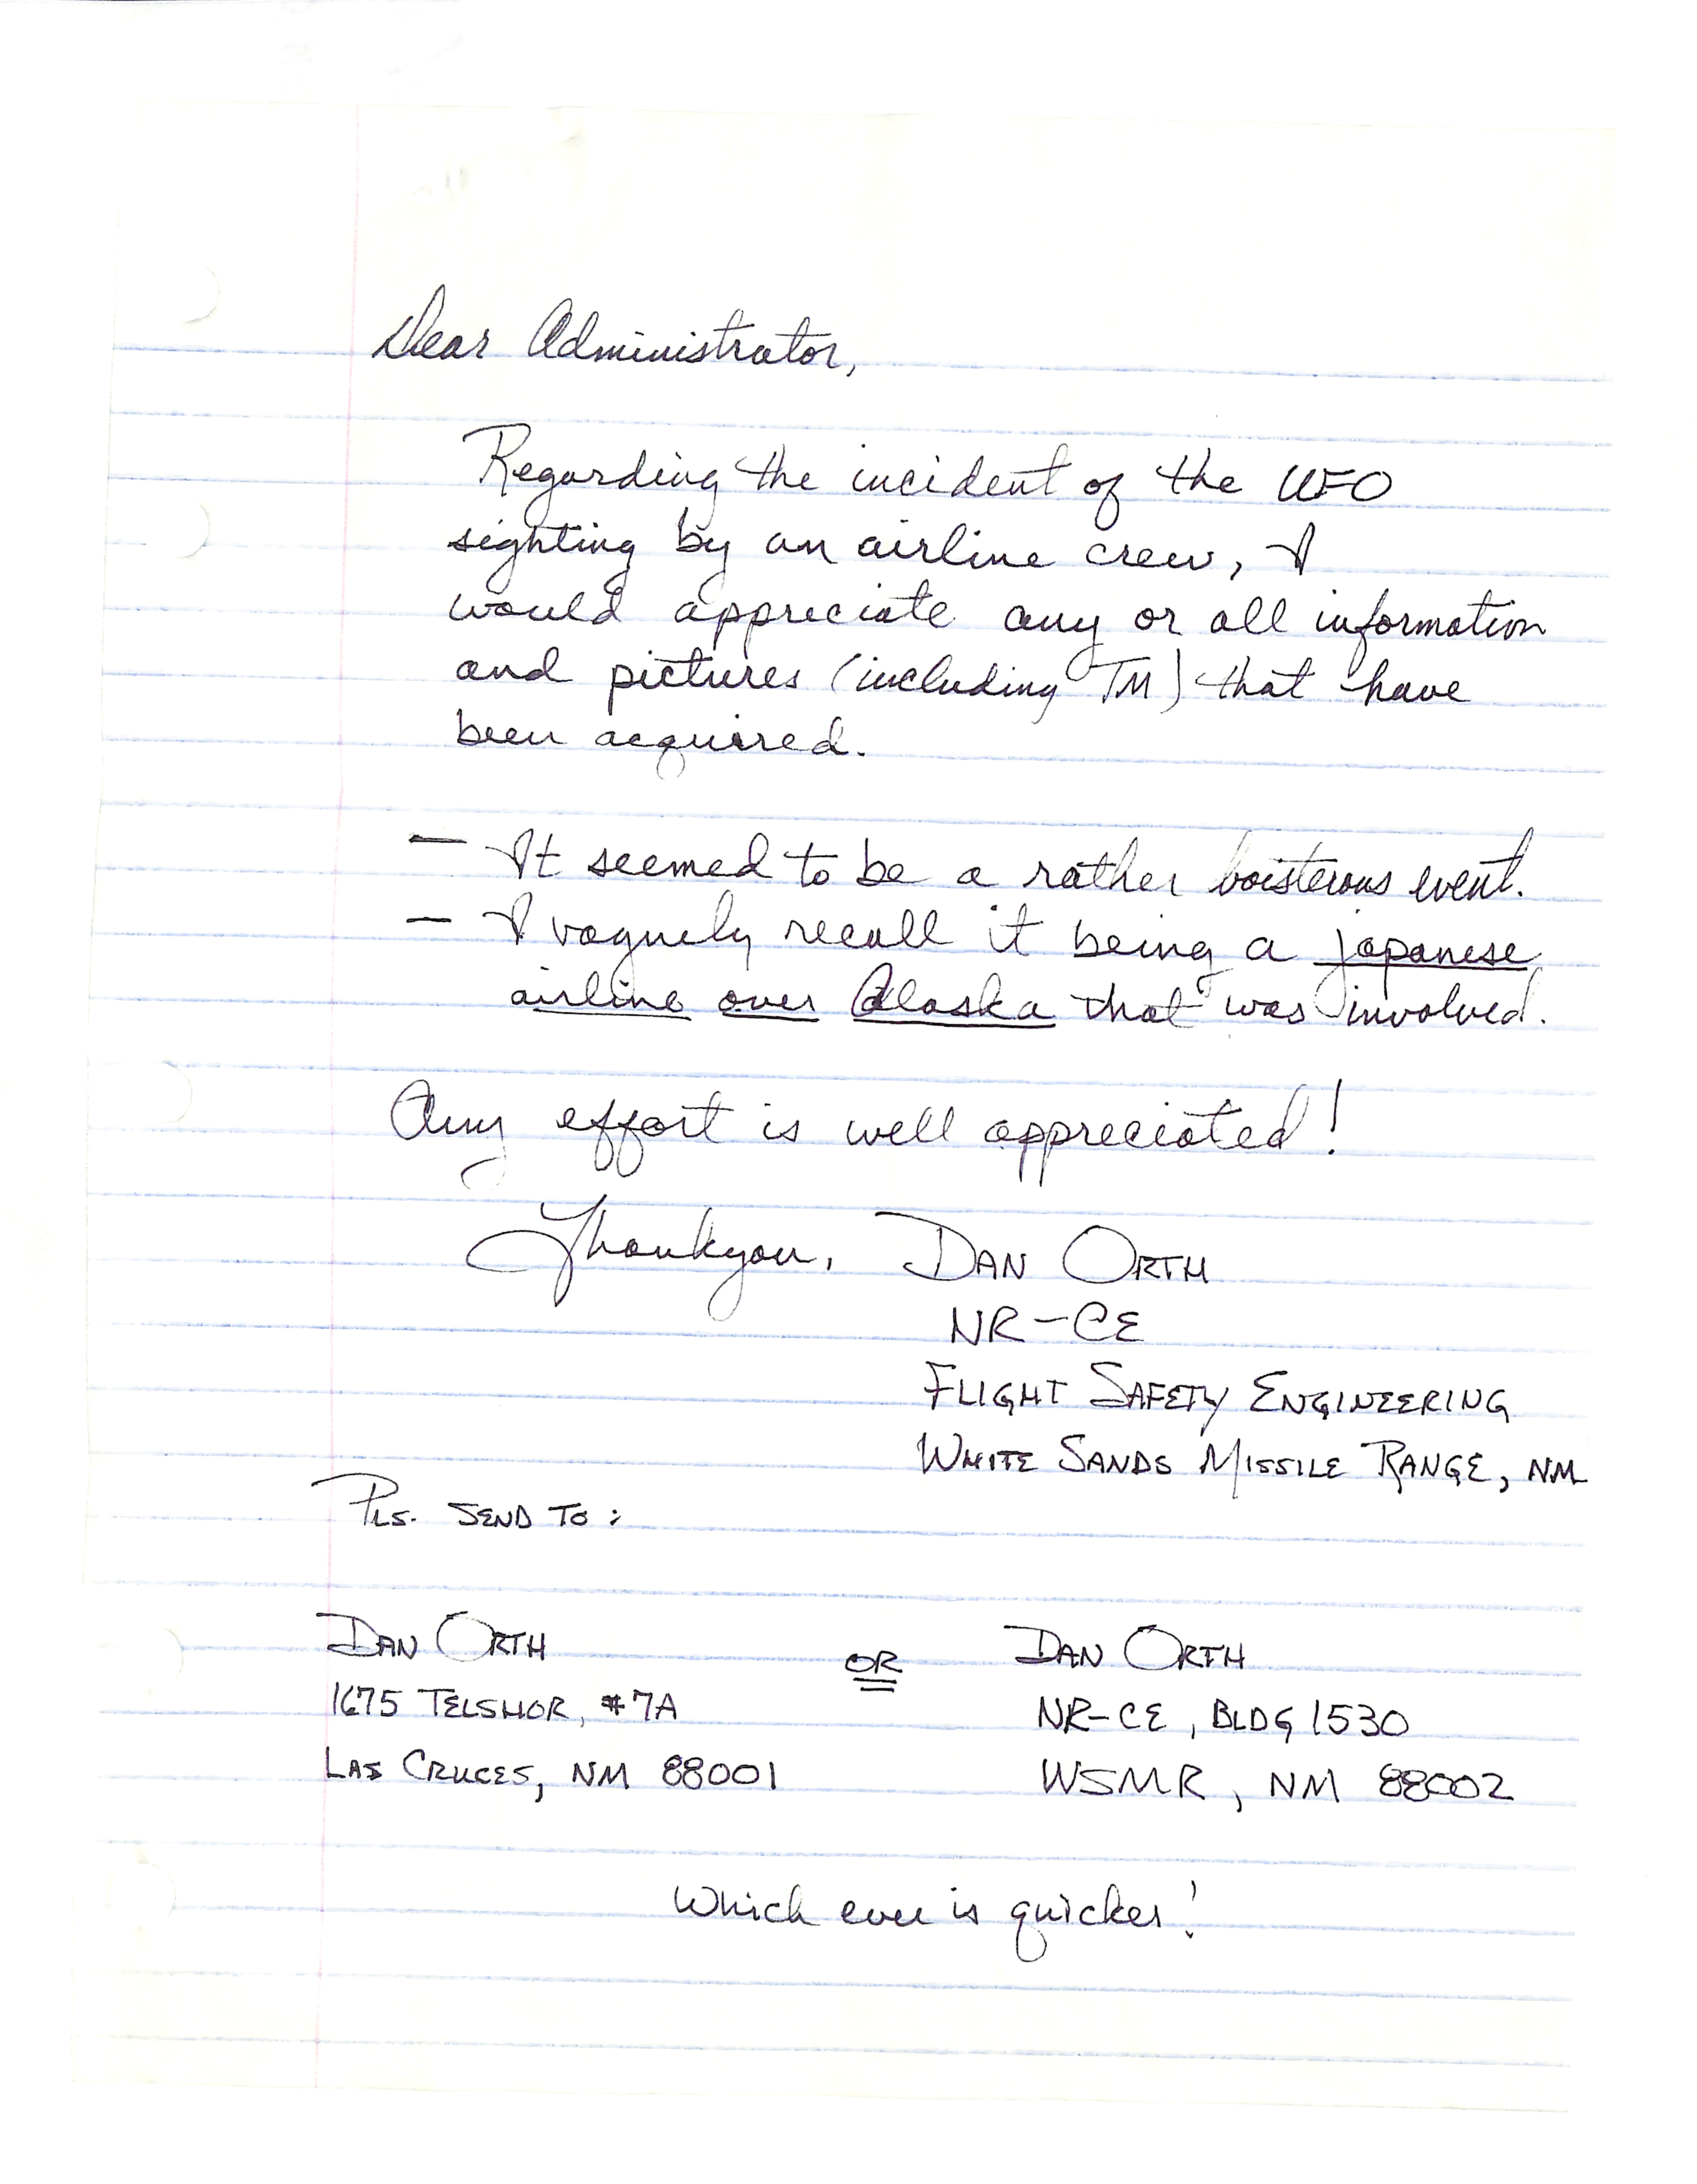 Dear Administrator,
Regarding the incident of the UFO
sighting by an airline crew, I
would appreciate any or all information
and pictures (including TM) that have
been acquired.
— It seemed to be a rather boisterous event.
— I vaguely recall it being a japanese
airline over Alaska that was involved.
Any effort is well appreciated!
Thankyou, DAN ORTH
NR-CE
FLIGHT SAFETY ENGINEERING
WHITE SANDS MISSILE RANGE, NM
PLS. SEND TO:
DAN ORTH
1675 TELSHOR, #7A
LAS CRUCES, NM 88001
OR
DAN ORTH
NR-CE, BLDG 1530
WSMR, NM 88002
Which ever is quicker!